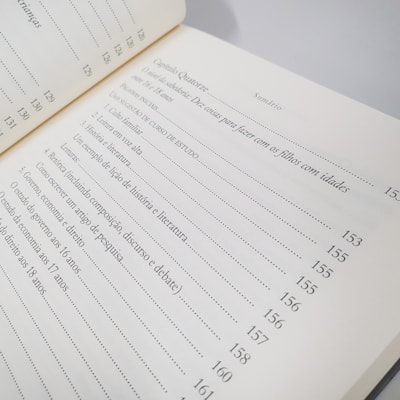 crianças
126
128
129
129
130
130
131
Sumário
Capítulo Quatorze
O nível de sabedoria: Dez coisas para fazer com os filhos com idades
entre 16 e 18 anos
153
Palavras iniciais
153
Um registro de curso de estudo
155
1. Culto familiar
155
2. Leitura em voz alta
155
3. História e literatura
156
Um exemplo de lição de história e literatura
156
Leituras
157
4. Retórica (incluindo composição, discurso e debate)
158
Como escrever um artigo de pesquisa
160
5. Governo, economia e direito
161
O estudo do governo aos 16 anos
O estudo da economia aos 17 anos
do direito aos 18 anos